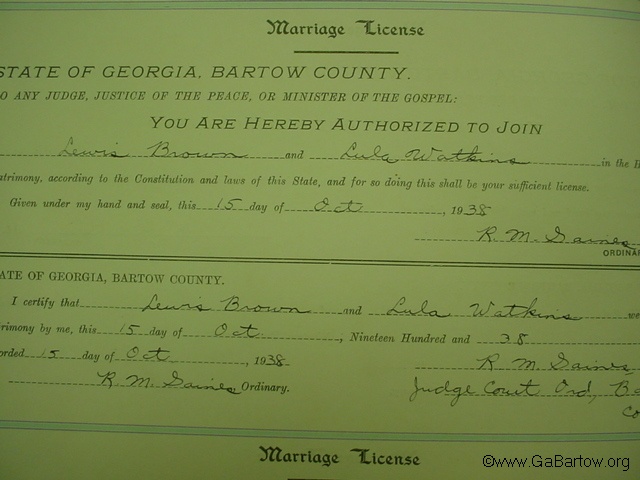 Marriage License
STATE OF GEORGIA, BARTOW COUNTY.
O ANY JUDGE, JUSTICE OF THE PEACE, OR MINISTER OF THE GOSPEL:
YOU ARE HEREBY AUTHORIZED TO JOIN
Lewis Brown and Lula Watkins in the H
atrimony, according to the Constitution and laws of this State, and for so doing this shall be your sufficient license.
Given under my hand and seal, this 15 day of Oct, 1938
R. M. Gaines
ORDINAR
ATE OF GEORGIA, BARTOW COUNTY.
I certify that Lewis Brown and Lula Watkins we
rimony by me, this 15 day of Oct, Nineteen Hundred and 38
orded 15 day of Oct, 1938 R M Gaines
R. M. Gaines Ordinary. Judge Court Ord, Ba
Co
Marriage License
©www.GaBartow.org